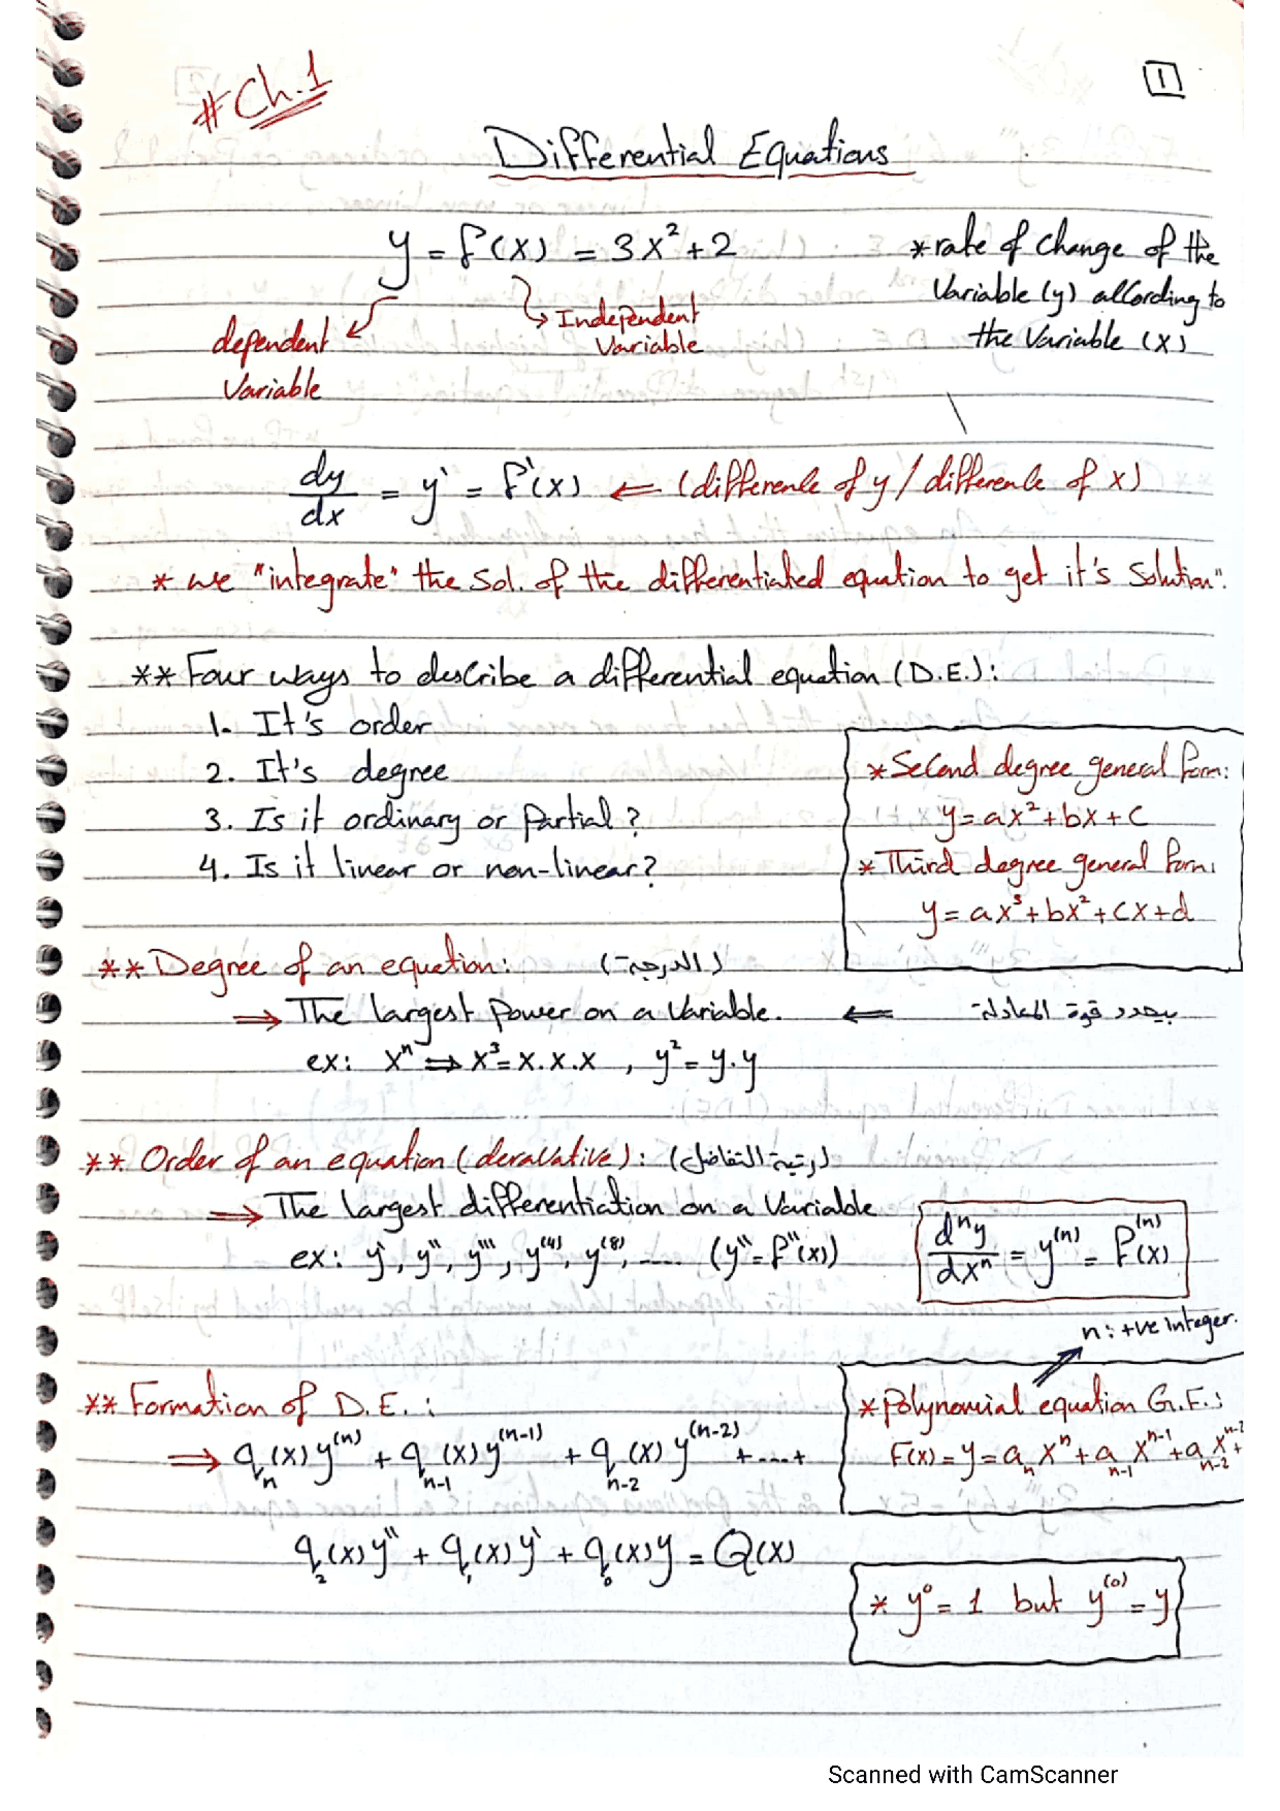 #Ch.1
1
Differential Equations
y = f(x) = 3x² + 2
*rate of change of the
Variable (y) according to
the Variable (x)
Independent
Variable
dependent
Variable
dy/dx = y' = f'(x) ← (difference of y / difference of x)
* we "integrate" the sol. of the differentiated equation to get it's solution".
** Four ways to describe a differential equation (D.E.):
1. It's order
2. It's degree
3. Is it ordinary or Partial?
4. Is it linear or non-linear?
*Second degree general form:
y = ax² + bx + c
*Third degree general form:
y = ax³ + bx² + cx + d
** Degree of an equation: (الدرجة)
⇒ The largest Power on a Variable. ⇐ بيحدد قوة المعادلة
ex: xⁿ ⇒ x³ = x.x.x , y² = y.y
** Order of an equation (deravative): (رتبة التفاضل)
⇒ The largest differentiation on a Variable
ex: y', y'', y''', y⁽⁴⁾, y⁽⁸⁾, .... (y'' = f''(x))
dⁿy/dxⁿ = y⁽ⁿ⁾ = f⁽ⁿ⁾(x)
n: +ve integer.
** Formation of D.E.:
⇒ qₙ(x)y⁽ⁿ⁾ + qₙ₋₁(x)y⁽ⁿ⁻¹⁾ + qₙ₋₂(x)y⁽ⁿ⁻²⁾ + ....+
q₂(x)y'' + q₁(x)y' + q₀(x)y = Q(x)
*Polynomial equation G.F.:
F(x) = y = aₙxⁿ + aₙ₋₁xⁿ⁻¹ + aₙ₋₂xⁿ⁻² +
* y⁰ = 1 but y⁽⁰⁾ = y
Scanned with CamScanner